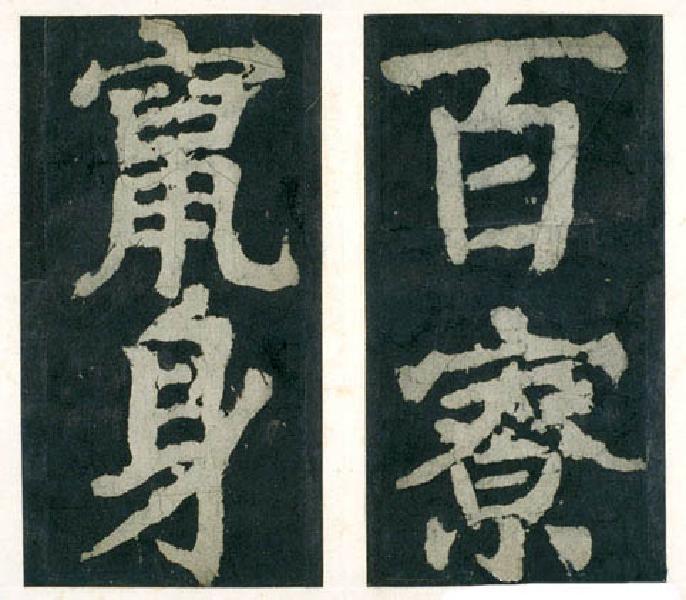 百寮
竄身